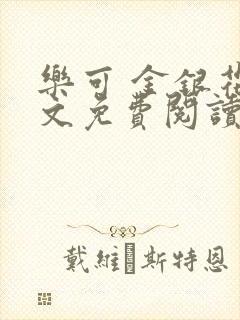 樂可 金銀花
文免費閱讀
戴維·斯特恩